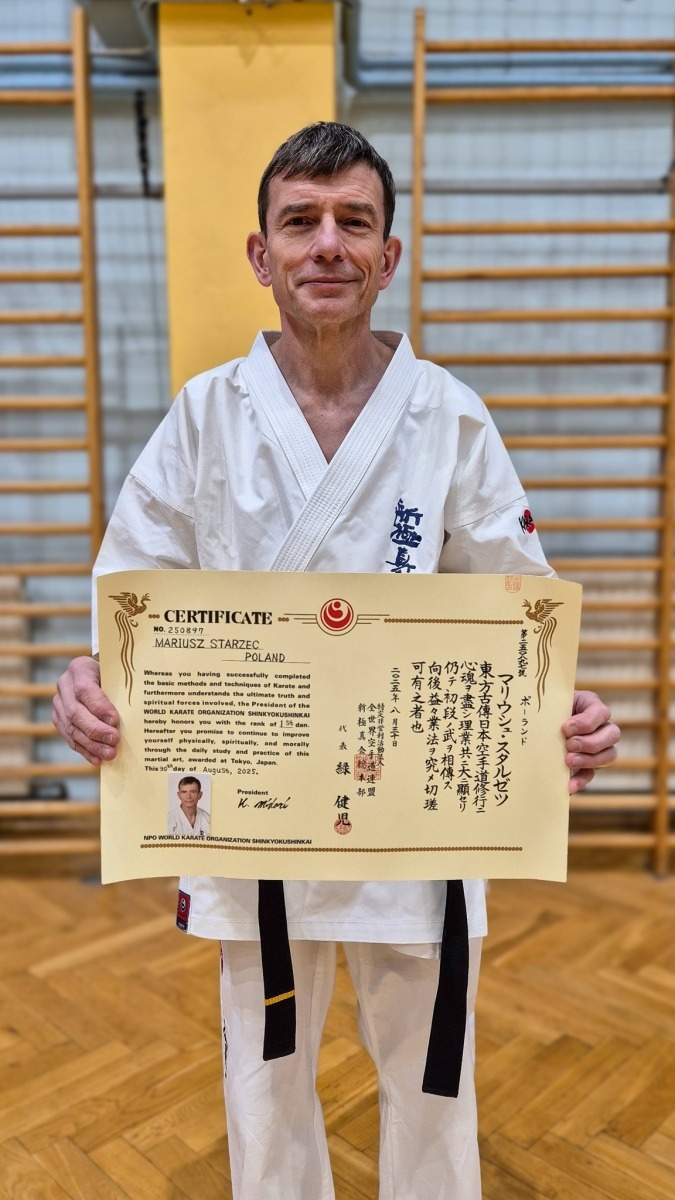 新極真
CERTIFICATE
NO. 250897
MARIUSZ STARZEC
POLAND
Whereas you having successfully completed
the basic methods and techniques of Karate and
furthermore understands the ultimate truth and
spiritual forces involved, the President of the
WORLD KARATE ORGANIZATION SHINKYOKUSHINKAI
hereby honors you with the rank of 1st dan.
Hereafter you promise to continue to improve
yourself physically, spiritually, and morally
through the daily study and practice of this
martial art, awarded at Tokyo, Japan.
This 30th day of August, 2025.
President
K. Midori
NPO WORLD KARATE ORGANIZATION SHINKYOKUSHINKAI
ポーランド
マリウシュ・スタルゼツ
東方古傳日本空手道修行ニ
心魂ヲ盡シ理業共ニ大ニ顯セリ
仍テ初段ノ武ヲ相傳ス
向後益々業法ヲ究メ切瑳
可有之者也
二〇二五年八月三十日
特定非営利活動法人
全世界空手道連盟
新極真会総本部
代表 緑健児